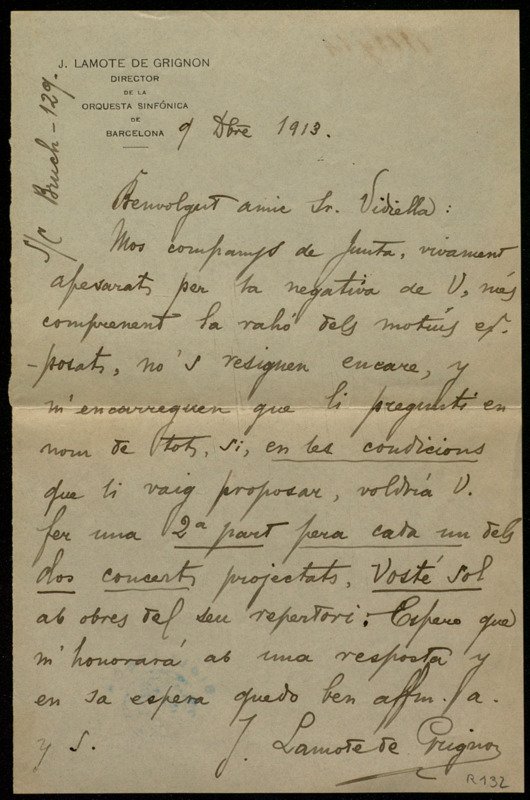 J. LAMOTE DE GRIGNON
DIRECTOR
DE LA
ORQUESTA SINFÓNICA
DE
BARCELONA
S/C Bruch - 129.
9 Dbre 1913.
Benvolgut amic Sr. Vidiella:
Mos companys de Junta, vivament
apesarats per la negativa de V, més
comprenent la rahó dels motius ex-
-posats, no's resignen encare, y
m'encarreguen que li pregunti en
nom de tots, si, en les condicions
que li vaig proposar, voldría V.
fer una 2ª part pera cada un dels
dos concerts projectats, Vosté sol
ab obres del seu repertori. Espero que
m'honorará ab una resposta y
en sa espera quedo ben affm. a.
y s. J. Lamote de Grignon
R.132